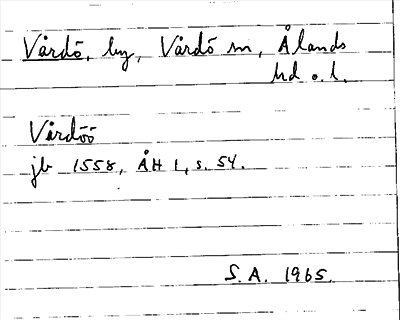 Vårdö, by, Vårdö sn, Ålands
hd o. l.
Vårdöö
jb 1558, ÅH 1, s. 54.
S.A. 1965.